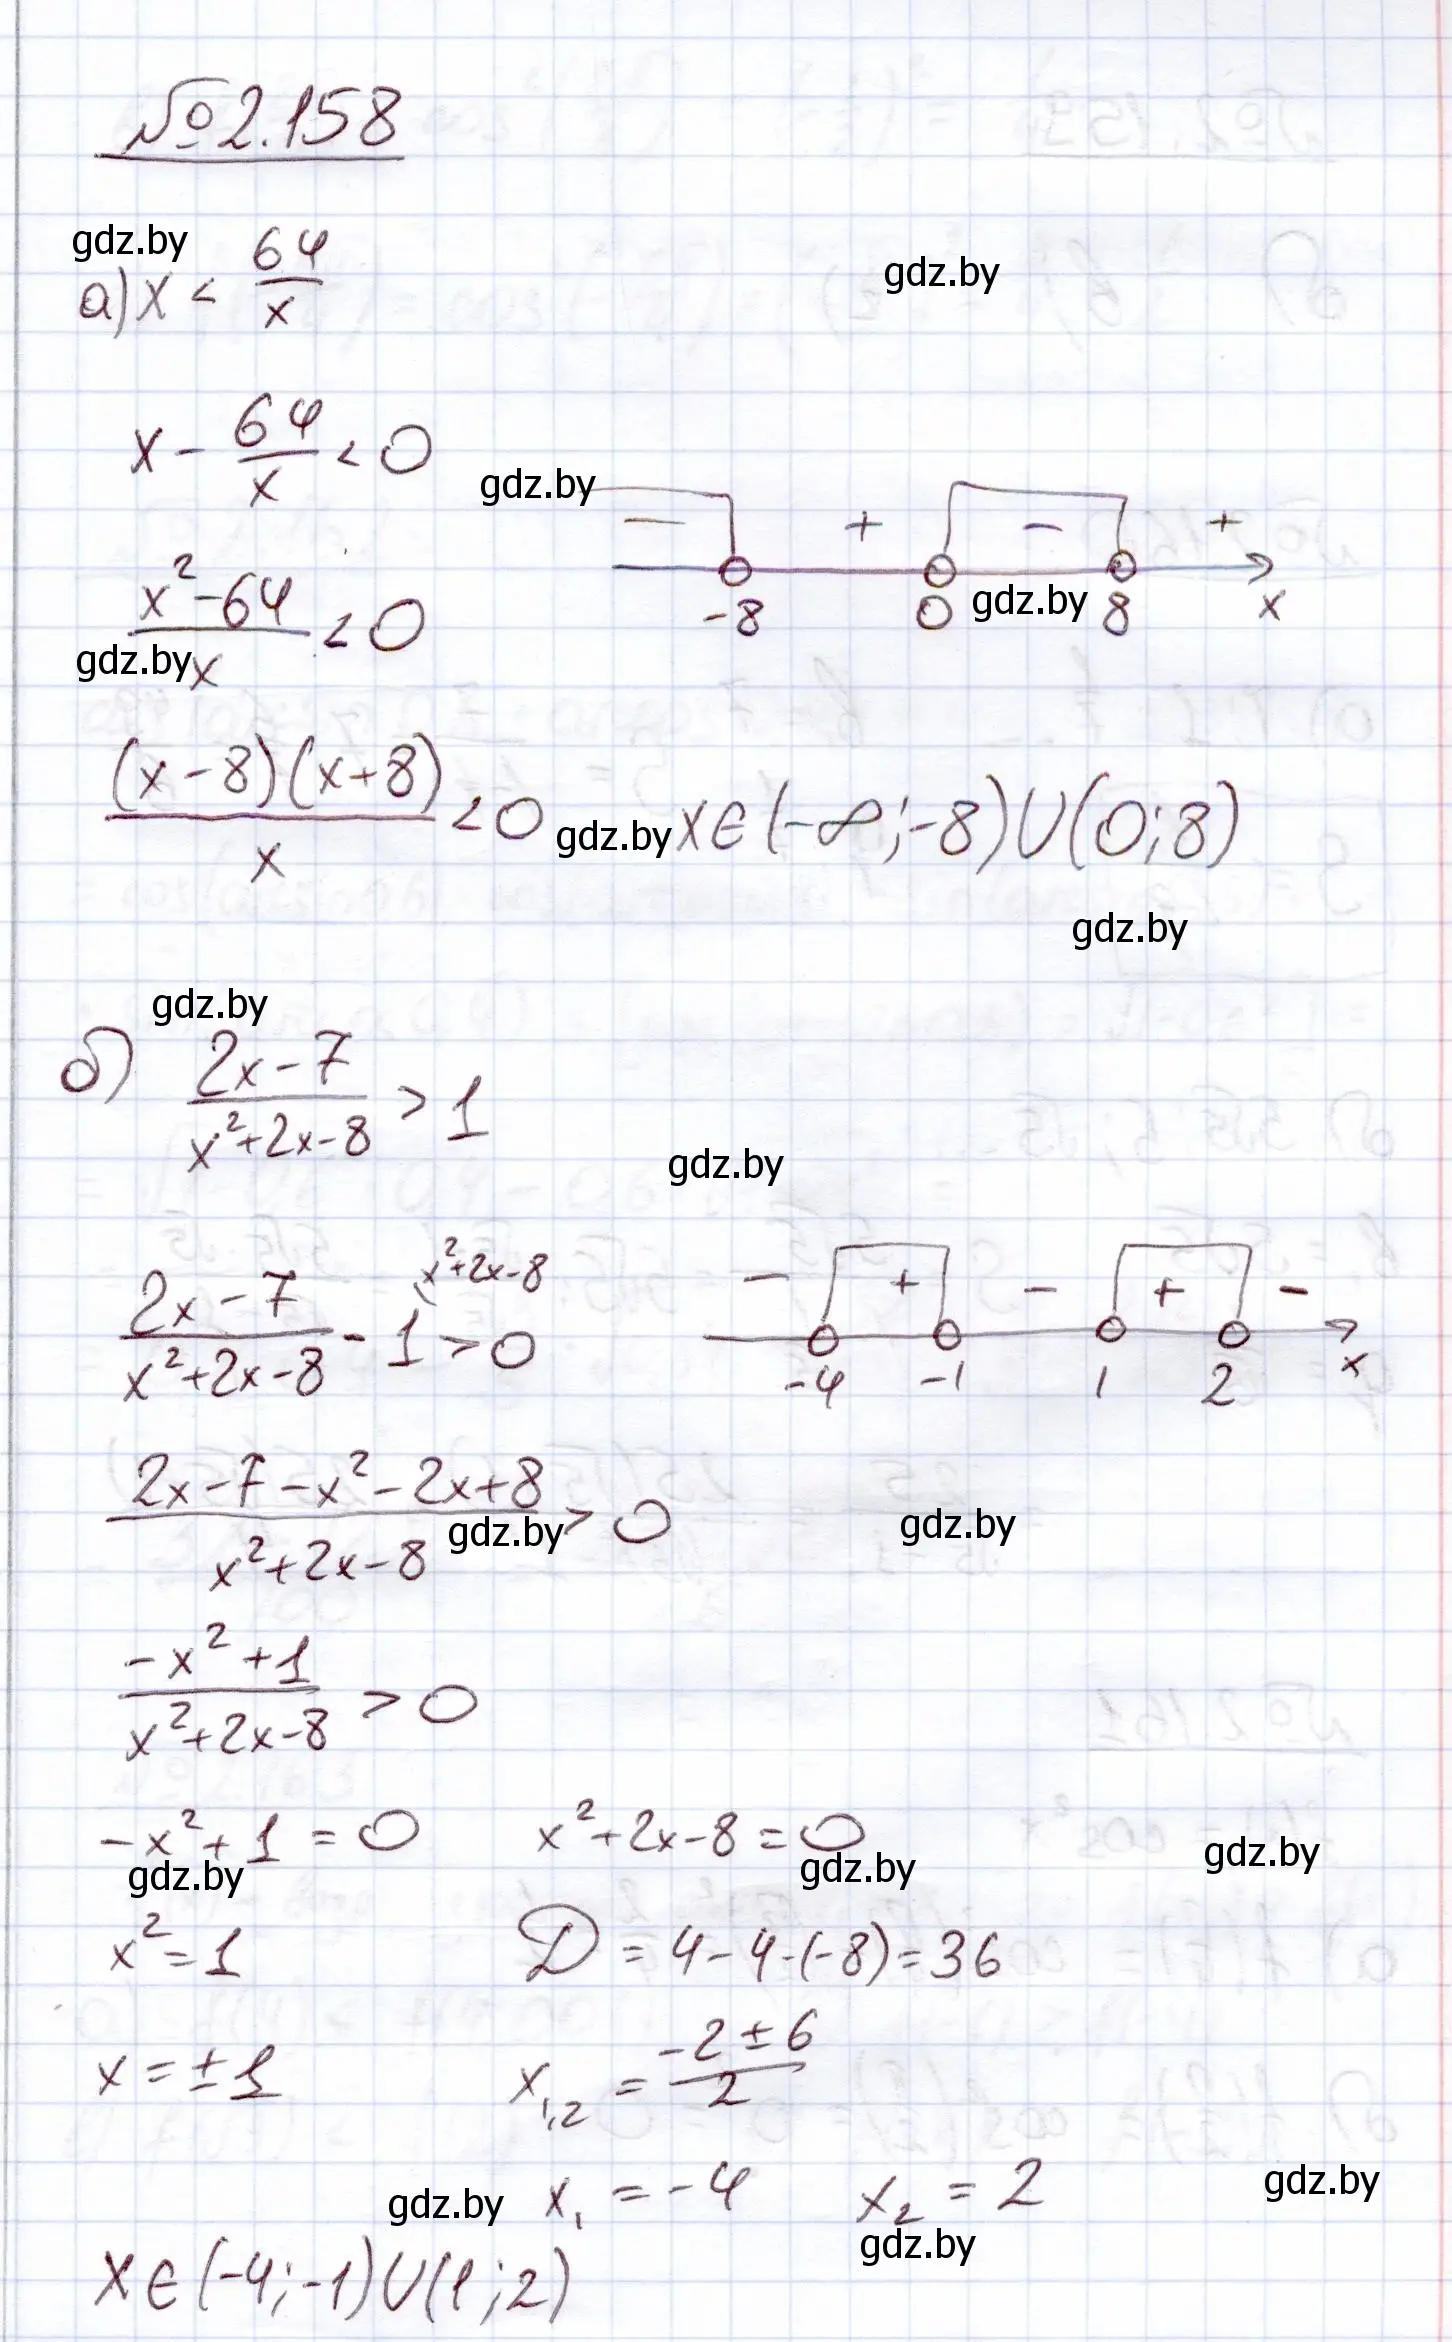 №2.158
gdz.by
а) x < 64/x
gdz.by
x - 64/x < 0
gdz.by
- + - +
-8 0 8 x
gdz.by
(x² - 64)/x < 0
gdz.by
((x - 8)(x + 8))/x < 0 gdz.by x ∈ (-∞; -8) ∪ (0; 8)
gdz.by
gdz.by
б) (2x - 7)/(x² + 2x - 8) > 1
gdz.by
(2x - 7)/(x² + 2x - 8) - 1 \ x² + 2x - 8 > 0
- + - + -
-4 -1 1 2 x
(2x - 7 - x² - 2x + 8)/(x² + 2x - 8) > 0
gdz.by gdz.by
(-x² + 1)/(x² + 2x - 8) > 0
-x² + 1 = 0 x² + 2x - 8 = 0
gdz.by gdz.by gdz.by
x² = 1 D = 4 - 4·(-8) = 36
x = ±1 x₁,₂ = (-2 ± 6)/2
gdz.by x₁ = -4 x₂ = 2 gdz.by
gdz.by
x ∈ (-4; -1) ∪ (1; 2)